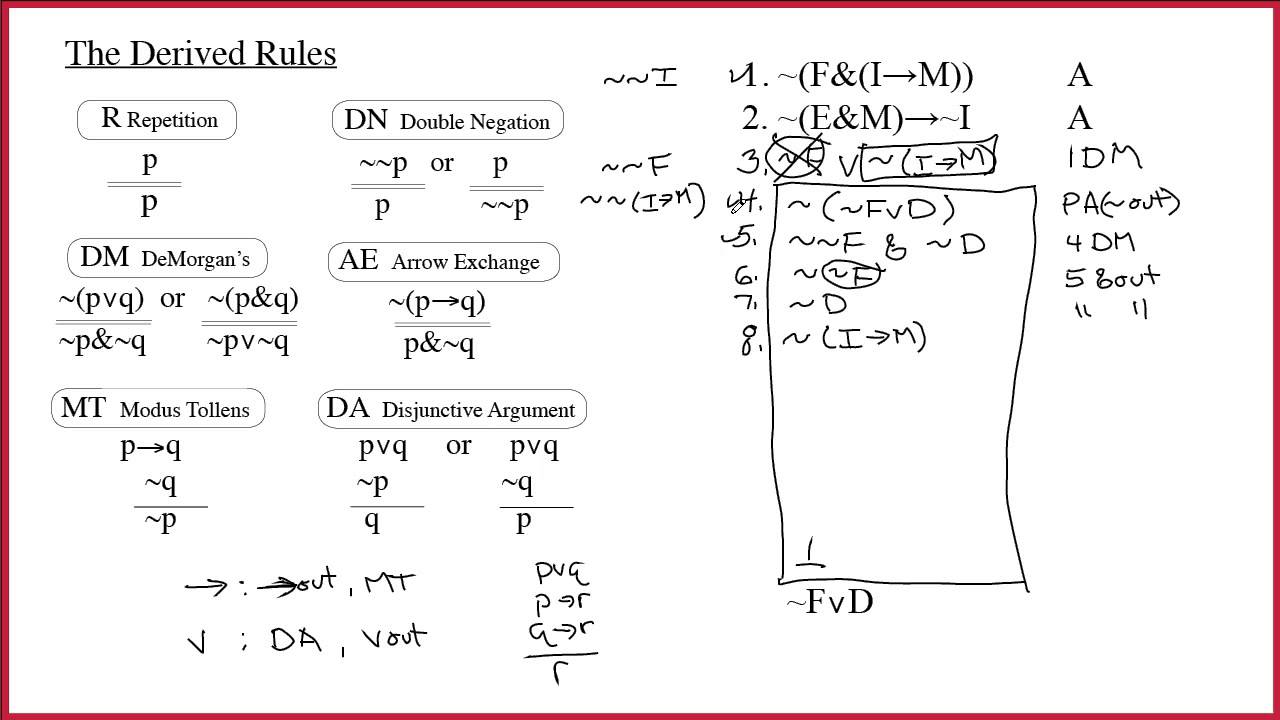 The Derived Rules
R Repetition
p
p
DN Double Negation
~~p or p
p ~~p
DM DeMorgan's
~(p∨q) or ~(p&q)
~p&~q ~p∨~q
AE Arrow Exchange
~(p→q)
p&~q
MT Modus Tollens
p→q
~q
~p
DA Disjunctive Argument
p∨q or p∨q
~p ~q
q p
→ : →out, MT
∨ : DA, ∨out
p∨q
p→r
q→r
r
~~I
~~F
~~(I→M)
1. ~(F&(I→M)) A
2. ~(E&M)→~I A
3. ~F ∨ ~(I→M) 1 DM
4. ~(~F∨D) PA(~out)
5. ~~F & ~D 4 DM
6. ~~F 5 &out
7. ~D " "
8. ~(I→M)
⊥
~F∨D